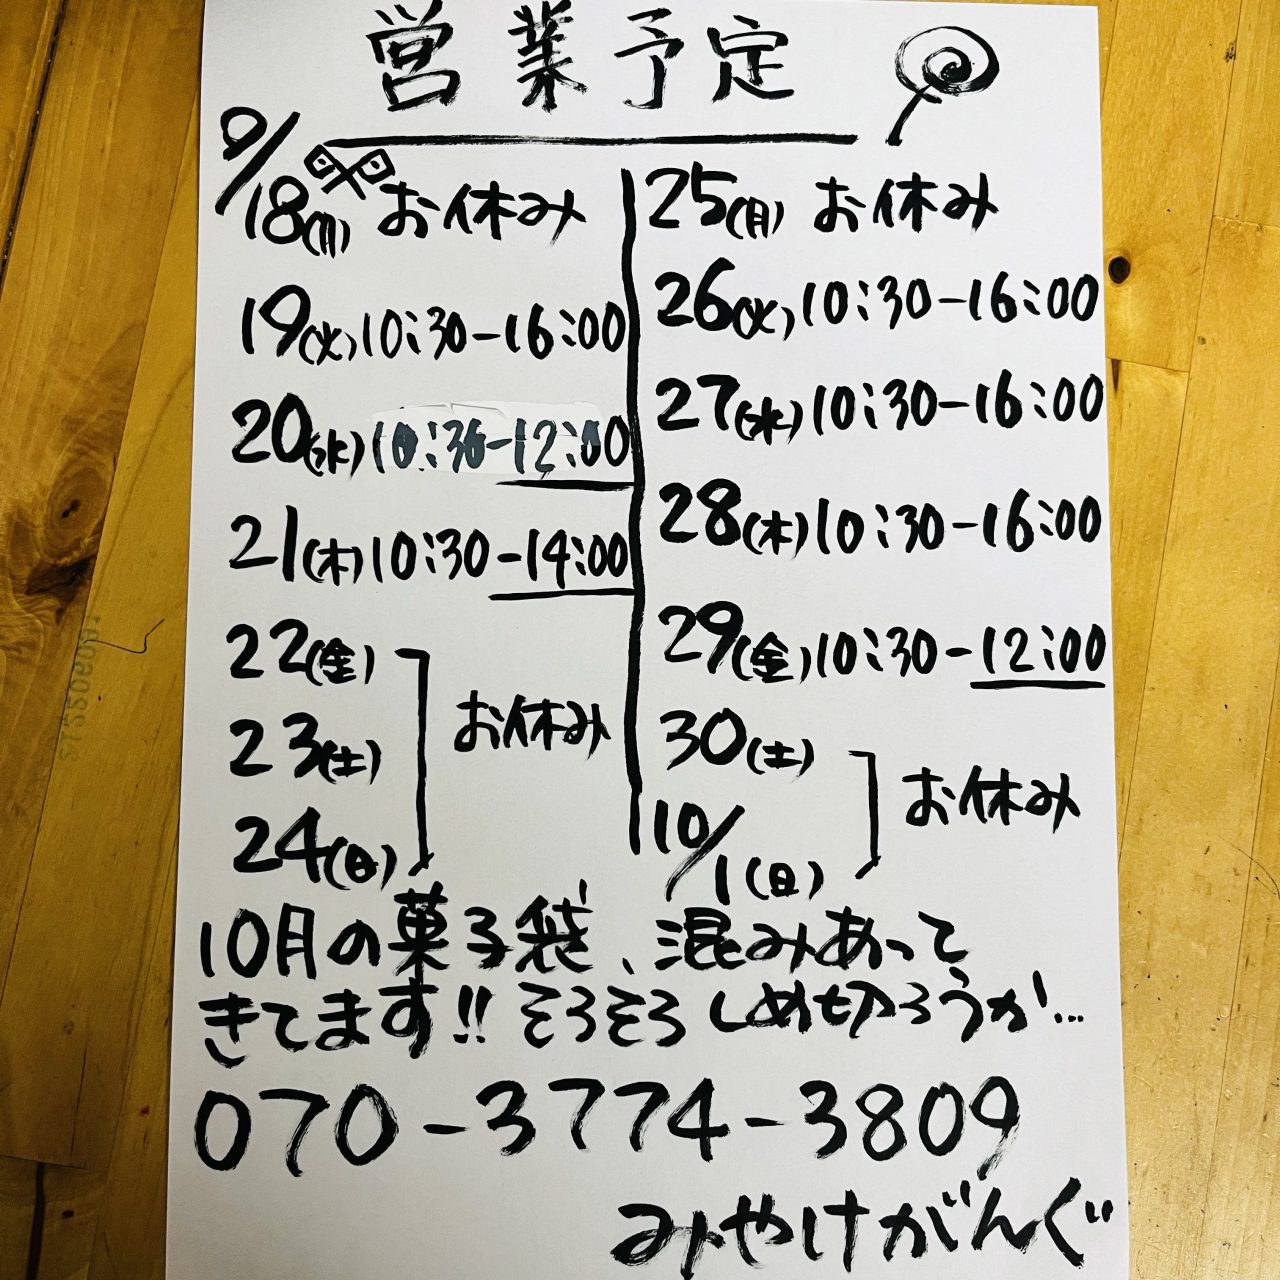 営業予定
9/18(月) お休み
19(火) 10:30-16:00
20(水) 10:30-12:00
21(木) 10:30-14:00
22(金)
23(土)
24(日)
お休み
25(月) お休み
26(火) 10:30-16:00
27(水) 10:30-16:00
28(木) 10:30-16:00
29(金) 10:30-12:00
30(土)
10/1(日)
お休み
10月の菓子袋、混みあって
きてます!! そろそろしめ切ろうか…
070-3774-3809
みやけがんぐ